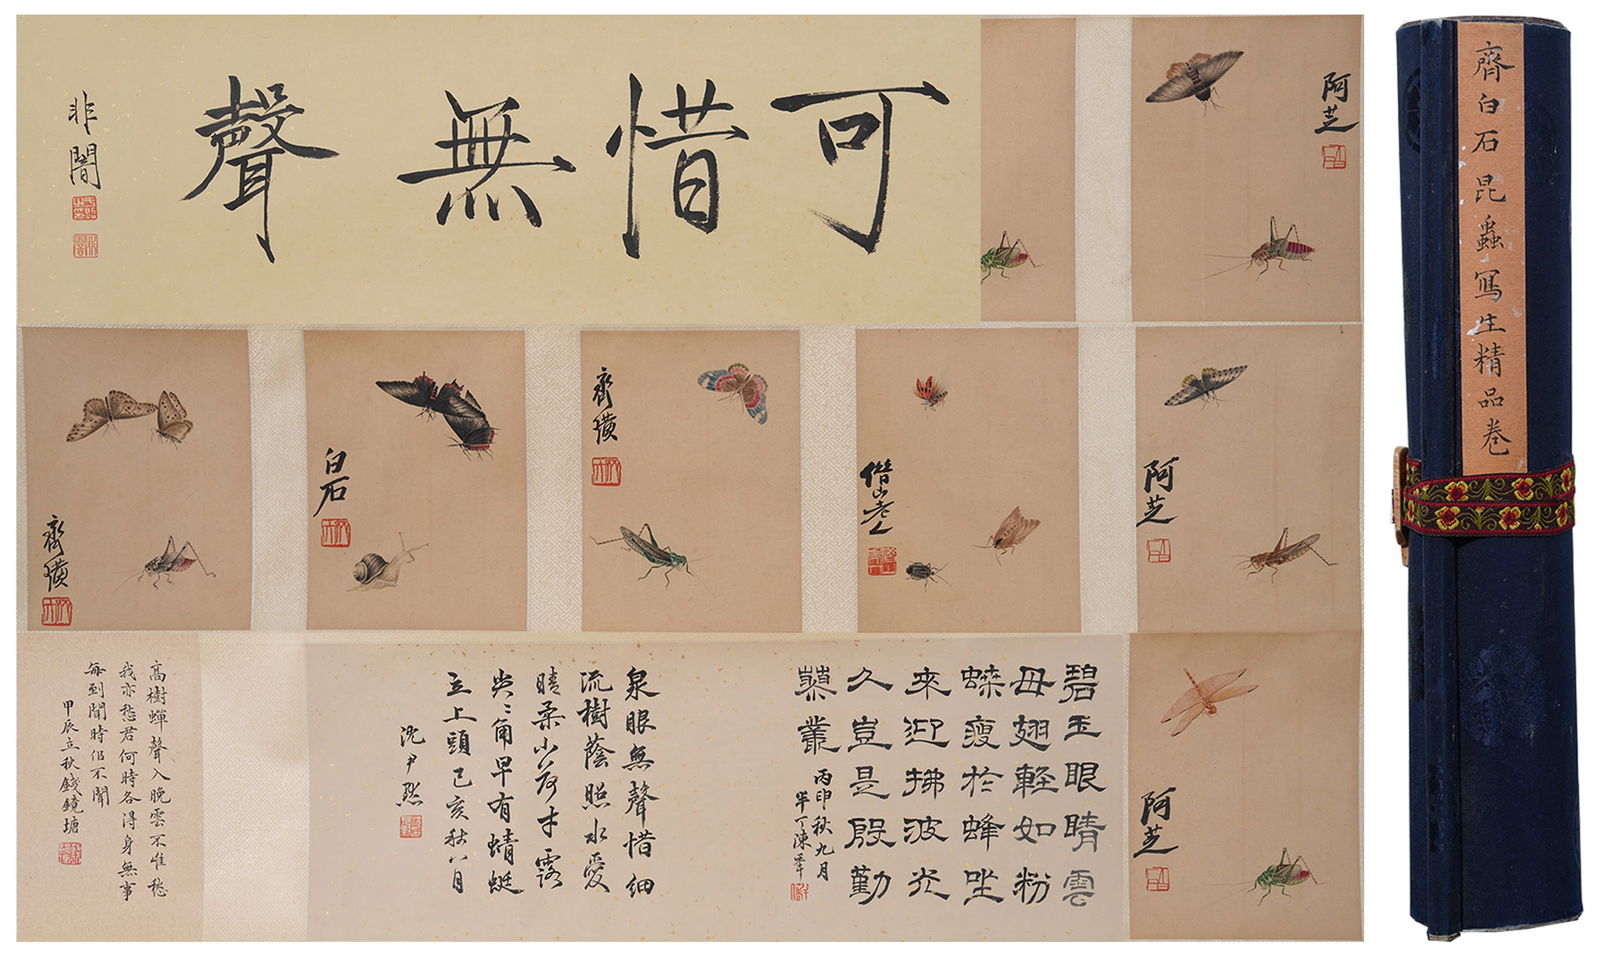 可惜無聲
非闇
阿芝
齊白石昆蟲寫生精品卷
齊璜
白石
齊璜
借山老人
阿芝
阿芝
碧玉眼睛雲
母翅輕如粉
蝶瘦於蜂坐
來迎拂波光
久豈是殷勤
慕叢
秋九月
半丁陳年
泉眼無聲惜細
流樹蔭照水愛
晴柔小荷才露
尖尖角早有蜻蜓
立上頭己亥秋八月
沈尹默
高樹蟬聲入晚雲不唯愁
我亦愁君何時各得身無事
每到聞時似不聞
甲辰立秋錢鏡塘